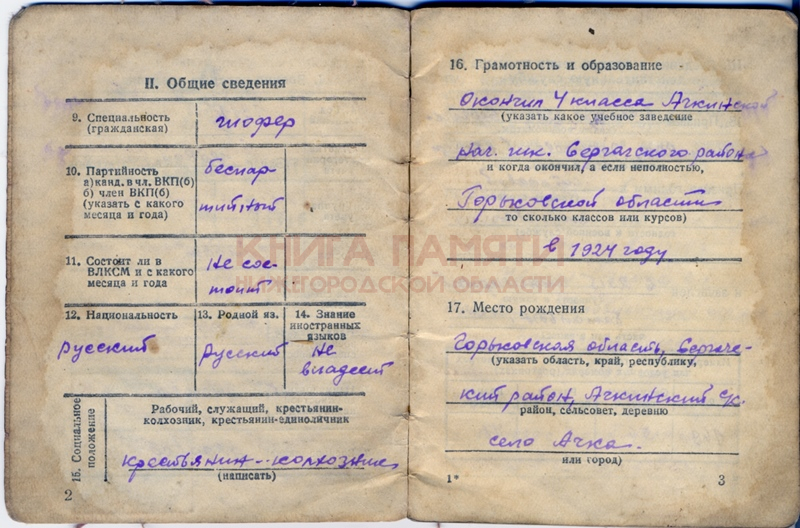 II. Общие сведения
9. Специальность
(гражданская)
шофер
10. Партийность
а) канд. в чл. ВКП(б)
б) член ВКП(б)
(указать с какого
месяца и года)
беспар-
тийный
11. Состоит ли в
ВЛКСМ и с какого
месяца и года
Не сос-
тоит
12. Национальность
русский
13. Родной яз.
русский
14. Знание
иностранных
языков
Не
владеет
15. Социальное
положение
Рабочий, служащий, крестьянин-
колхозник, крестьянин-единоличник
крестьянин-колхозник
(написать)
2
16. Грамотность и образование
окончил 4 класса Ачкинской
(указать какое учебное заведение
нач. шк. Сергачского района
и когда окончил, а если неполностью,
Горьковской области
то сколько классов или курсов)
в 1924 году
17. Место рождения
Горьковская область, Сергаче-
(указать область, край, республику,
кий район, Ачкинский с/с.
район, сельсовет, деревню
село Ачка.
или город)
1*
3
КНИГА ПАМЯТИ
НИЖЕГОРОДСКОЙ ОБЛАСТИ